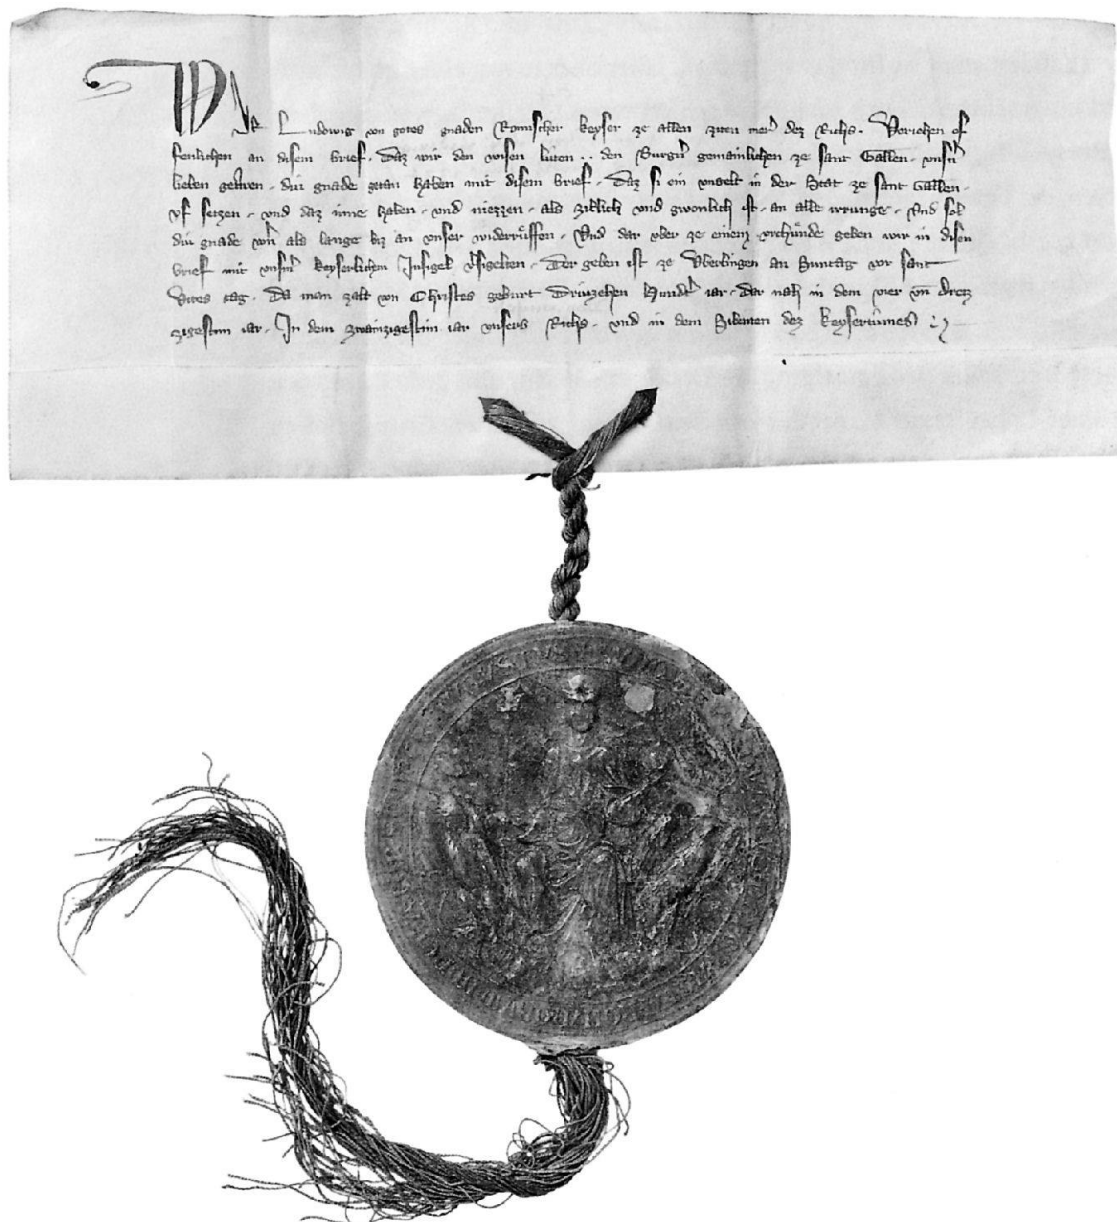 WIR Ludowig von gotes gnaden Romischer keyser ze allen ziten merer dez Richs. Veriehen of
fenlichen an disem brief. Daz wir den wisen luten .. den Burgern gemainlichen ze sant Gallen. unsern
lieben getriwen. diu gnade getan haben mit disem brief. Daz si ein ungelt in der Stat ze sant Gallen.
uf setzen. und daz inne haben. und niezzen. als zitlich und gwonlich ist. an alle irrunge. Und sol
diu gnade wern als lange biz an unser widerrůffen. Und dar uber ze einem urchünde geben wir in disen
brief mit unserm keyserlichem Insigel versigelten. Der geben ist ze Uberlingen an Suntag vor sant
Vites tag. Da man zalt von Christes geburt Driuzehen Hundert iar. Dar nah in dem vier und drez
zigestem iar. In dem zwainzigestem iar unsers Richs. und in dem Sibenten dez keysertůmes